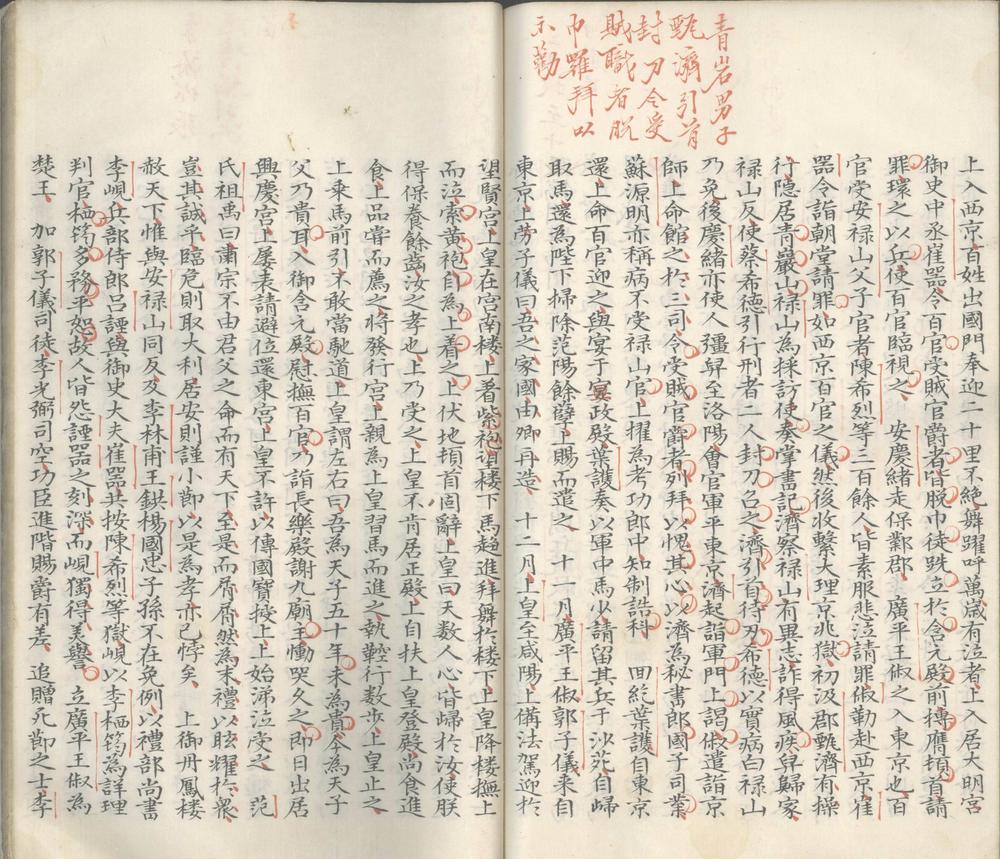 青岩男子
甄濟引首
封刀令受
賊職者脫
巾羅拜以
示勸
上入西京百姓出國門奉迎二十里不絶舞躍呼萬歲有泣者上入居大明宮
御史中丞崔噐令百官受賊官爵者皆脫巾徒跣立於含元殿前搏膺頓首請
罪環之以兵使百官臨視之　安慶緒走保鄴郡　廣平王俶之入東京也百
官受安禄山父子官者陳希烈等三百餘人皆素服悲泣請罪俶勒赴西京崔
噐令詣朝堂請罪如西京百官之儀然後收繫大理京兆獄初汲郡甄濟有操
行隱居青巖山禄山為採訪使奏掌書記濟察禄山有異志詐得風疾舁歸家
禄山反使蔡希德引行刑者二人封刀召之濟引首待刃希德以實病白禄山
乃免後慶緒亦使人彊舁至洛陽會官軍平東京濟起詣軍門上謁俶遣詣京
師上命館之於三司令受賊官爵者列拜以愧其心以濟為秘書郎國子司業
蘇源明亦稱病不受禄山官上擢為考功郎中知制誥科　回紇葉護自東京
還上命百官迎之與宴于宴政殿葉護奏以軍中馬少請留其兵于沙苑自歸
取馬還為陛下掃除范陽餘孽上賜而遣之　十一月廣平王俶郭子儀來自
東京上勞子儀曰吾之家國由卿再造　十二月上皇至咸陽上備法駕迎於
望賢宮上皇在宮南楼上着紫袍望楼下馬趨進拜舞於楼下上皇降楼撫上
而泣索黃袍自為上着之上伏地頓首固辭上皇曰天数人心皆歸於汝使朕
得保養餘齒汝之孝也上乃受之上皇不肯居正殿上自扶上皇登殿尚食進
食上品嘗而薦之將發行宮上親為上皇習馬而進之執鞚行数步上皇止之
上乘馬前引不敢當馳道上皇謂左右曰吾為天子五十年未為貴今為天子
父乃貴耳入御含元殿慰撫百官乃詣長樂殿謝九廟主慟哭久之即日出居
興慶宮上屡表請避位還東宮上皇不許以傳國寶授上上始涕泣受之　范
氏祖禹曰肅宗不由君父之命而有天下至是而屑屑然為末禮以眩耀於衆
豈其誠乎臨危則取大利居安則謹小節以是為孝亦已悖矣　上御丹鳳楼
赦天下惟與安禄山同反及李林甫王鉷楊國忠子孫不在免例以禮部尚書
李峴兵部侍郎呂諲與御史大夫崔噐共按陳希烈等獄峴以李栖筠為詳理
判官栖筠多務平恕故人皆怨諲噐之刻深而峴獨得美譽　立廣平王俶為
楚王　加郭子儀司徒李光弼司空功臣進階賜爵有差　追贈死節之士李